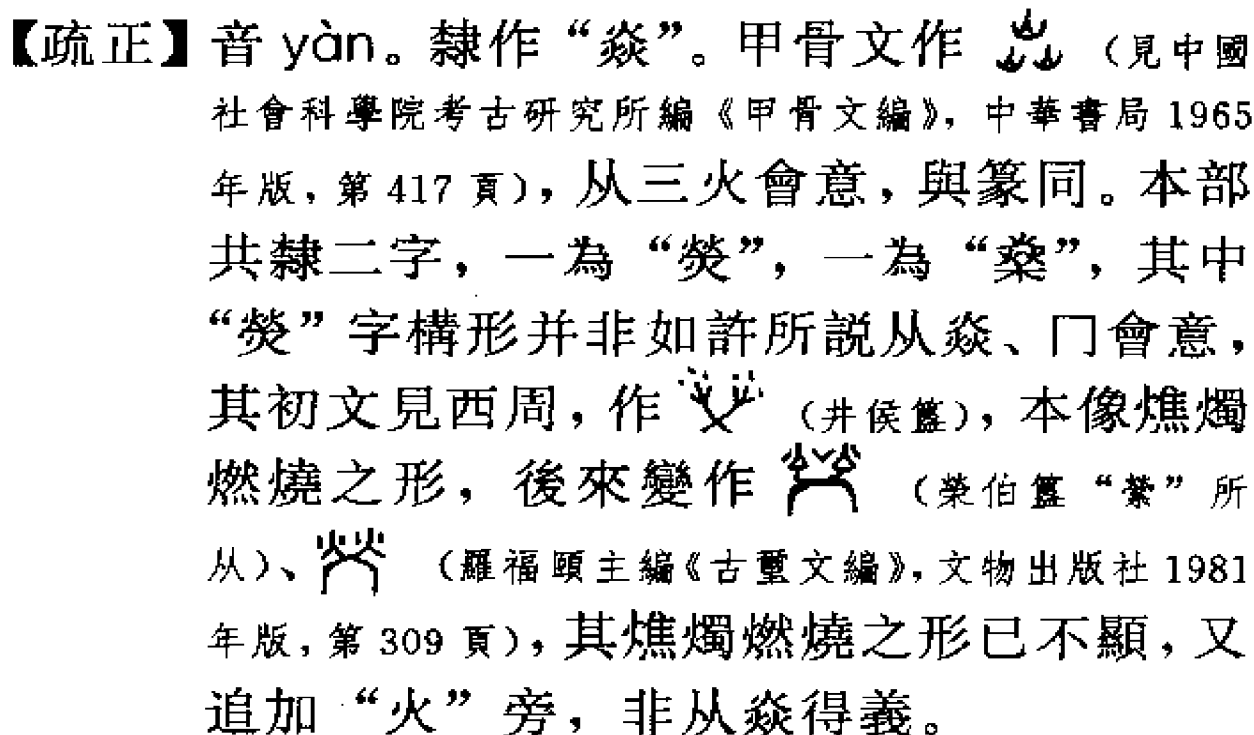 【疏正】音 yàn。隸作“焱”。甲骨文作 （見中國
社會科學院考古研究所編《甲骨文編》，中華書局 1965
年版，第 417 頁），从三火會意，與篆同。本部
共隸二字，一為“熒”，一為“燊”，其中
“熒”字構形并非如許所説从焱、冂會意，
其初文見西周，作 （井侯簋），本像燋燭
燃燒之形，後來變作 （榮伯簋“縈”所
从）、 （羅福頤主編《古璽文編》，文物出版社 1981
年版，第 309 頁），其燋燭燃燒之形已不顯，又
追加“火”旁，非从焱得義。